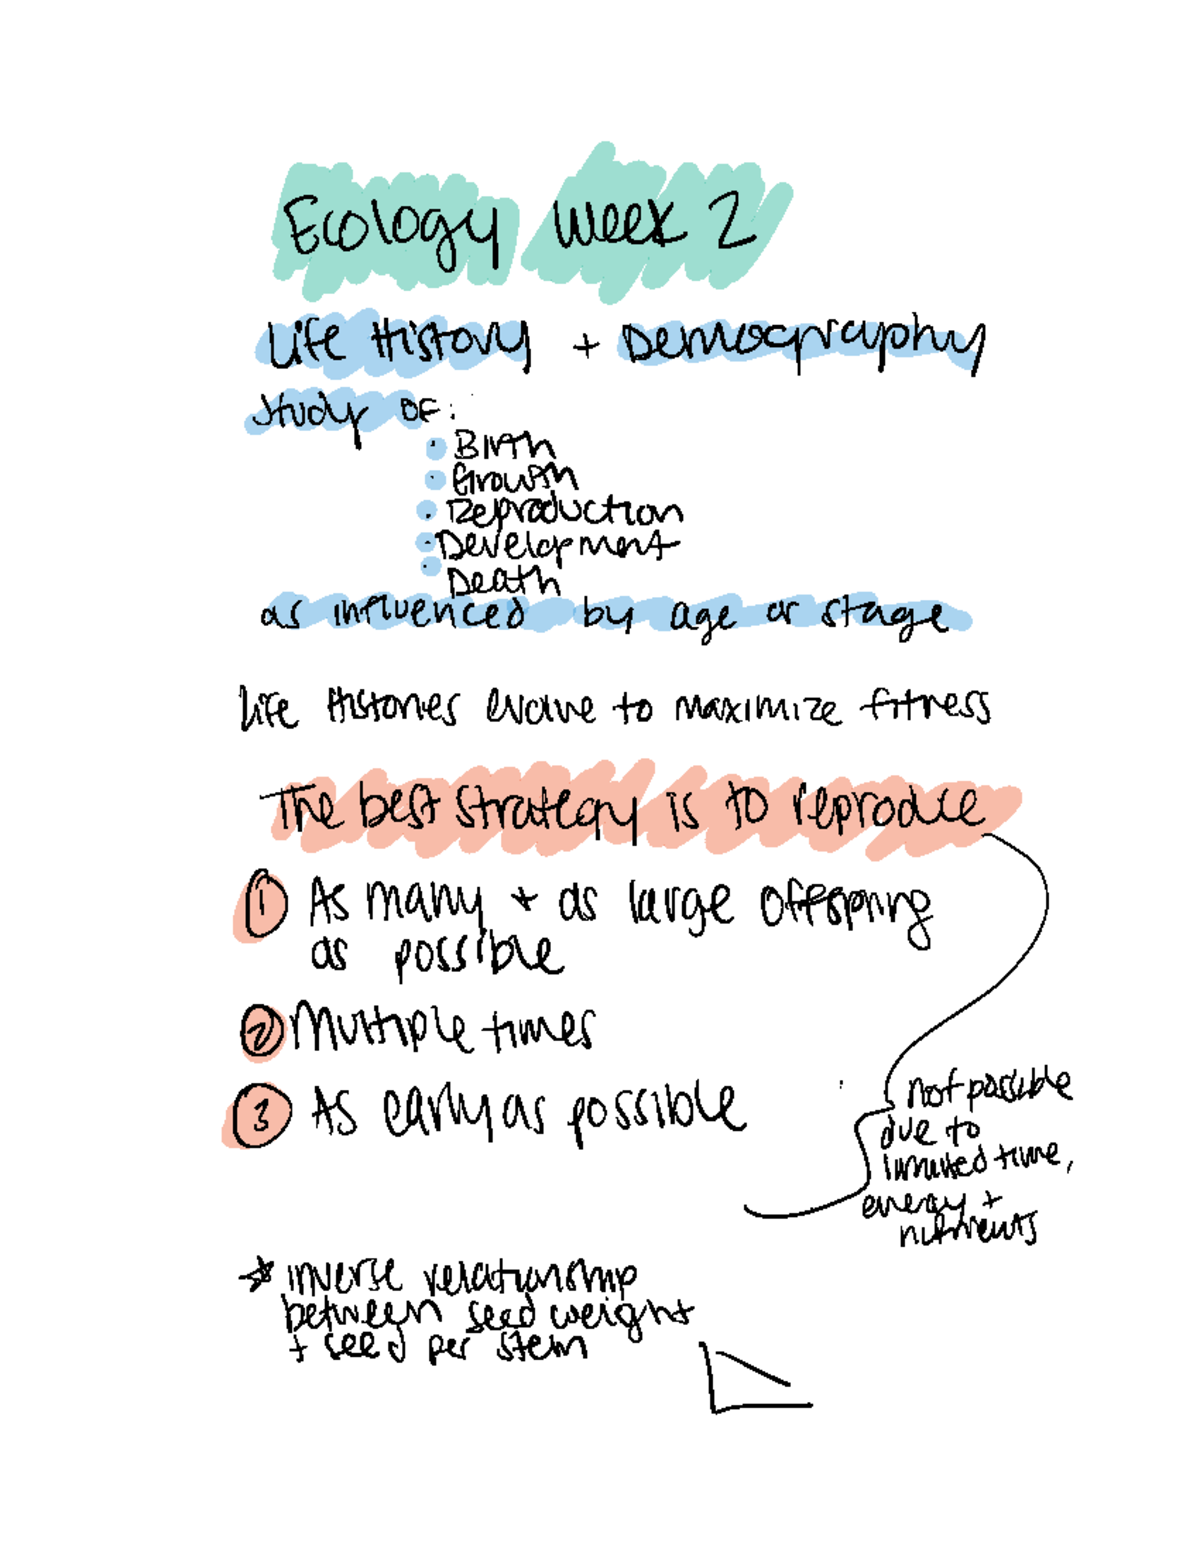 Ecology Week 2
Life History + Demography
Study of:
• Birth
• Growth
• Reproduction
• Development
• Death
as influenced by age or stage
Life Histories evolve to maximize fitness
The best strategy is to reproduce
① As many + as large offspring
as possible
② Multiple times
③ As early as possible
not possible
due to
limited time,
energy +
nutrients
→* inverse relationship
between seed weight
+ seed per stem